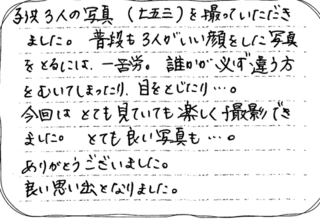 子供3人の写真（七五三）を撮っていただき
ました。普段も3人がいい顔をした写真
をとるには、一苦労。誰かが必ず違う方
をむいてしまったり、目をとじたり…。
今回はとても見ていても楽しく撮影でき
ました。とても良い写真も…。
ありがとうございました。
良い思い出となりました。